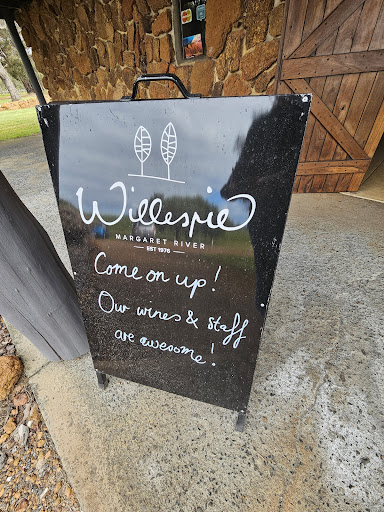 Willespie
MARGARET RIVER
EST 1976
Come on up!
Our wines & staff
are awesome!